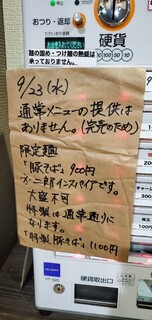 おつり・返却
硬貨
お金を入れてください
麺の固め・つけ麺の熱盛は
承っておりません。
9/23(水)
通常メニューの提供は
ありません。(完売のため)
限定麺
「豚そば」 900円
×二郎インスパイアです。
大盛不可
特製は通常通りに
なります。
「特製豚そば」1100円
硬貨取出口